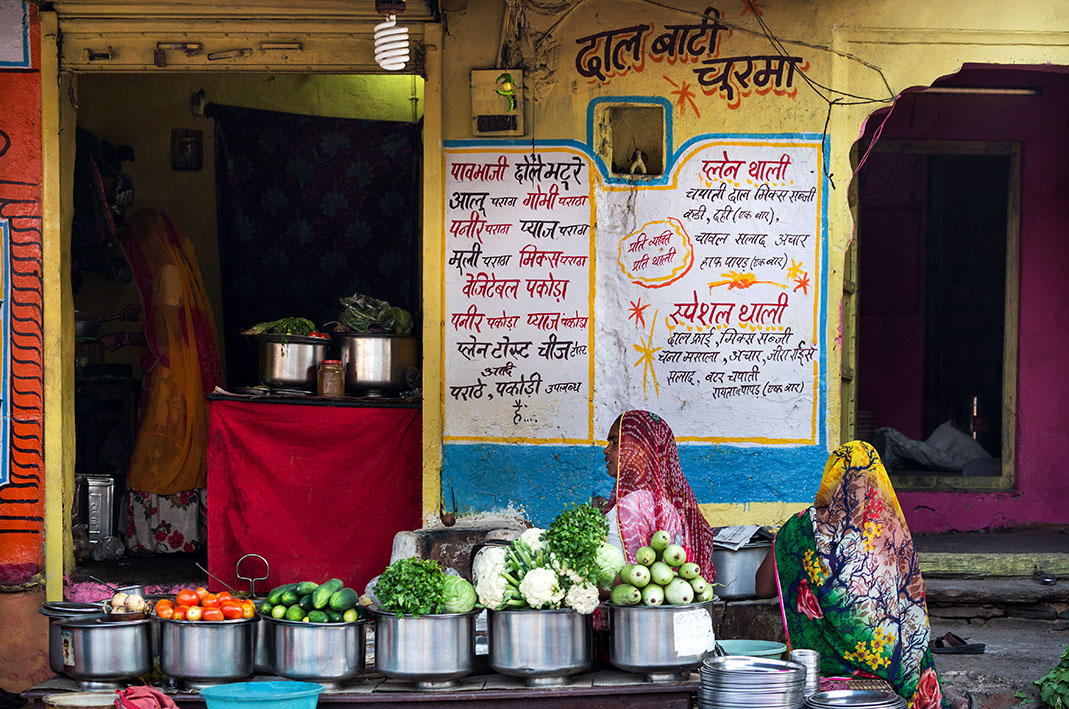 दाल बाटी
चूरमा
पावभाजी छोले मटूरे
आलू पराठा गोभी पराठा
पनीर पराठा प्याज पराठा
मूली पराठा मिक्स पराठा
वेजिटेबल पकोड़ा
पनीर पकोड़ा प्याज पकोड़ा
प्लेन टोस्ट चीज टोस्ट
आदि
पराठे, पकोड़ी उपलब्ध
है....
प्लेन थाली
चपाती दाल मिक्स सब्जी
कढी, दही (एक बार),
चावल सलाद अचार
हाफ पापड़ (एक बार)
प्रति व्यक्ति
प्रति थाली
स्पेशल थाली
दाल फ्राई, मिक्स सब्जी
चना मसाला, अचार, जीरा राईस
सलाद, बटर चपाती
रायता पापड़ (एक बार)